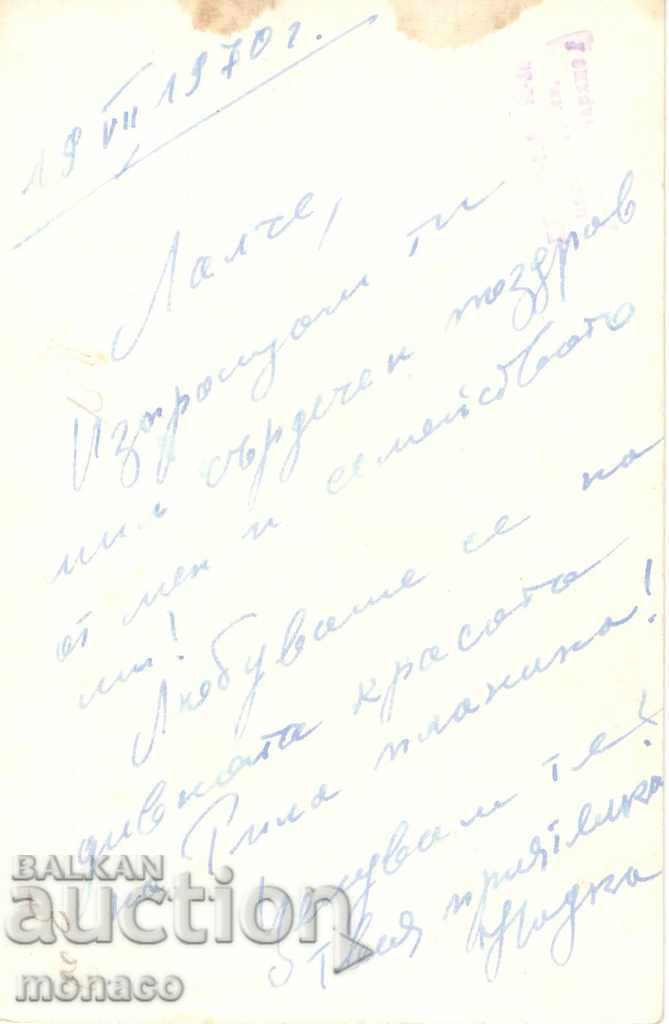 19 VII 1970 г.
Лалче,
Изпращам ти
мил сърдечен поздрав
от мен и семейството
ми!
Любуваме се на
дивната красота
на Рила планина!
Целувам те!
Твоя приятелка
BALKAN
auction
monaco